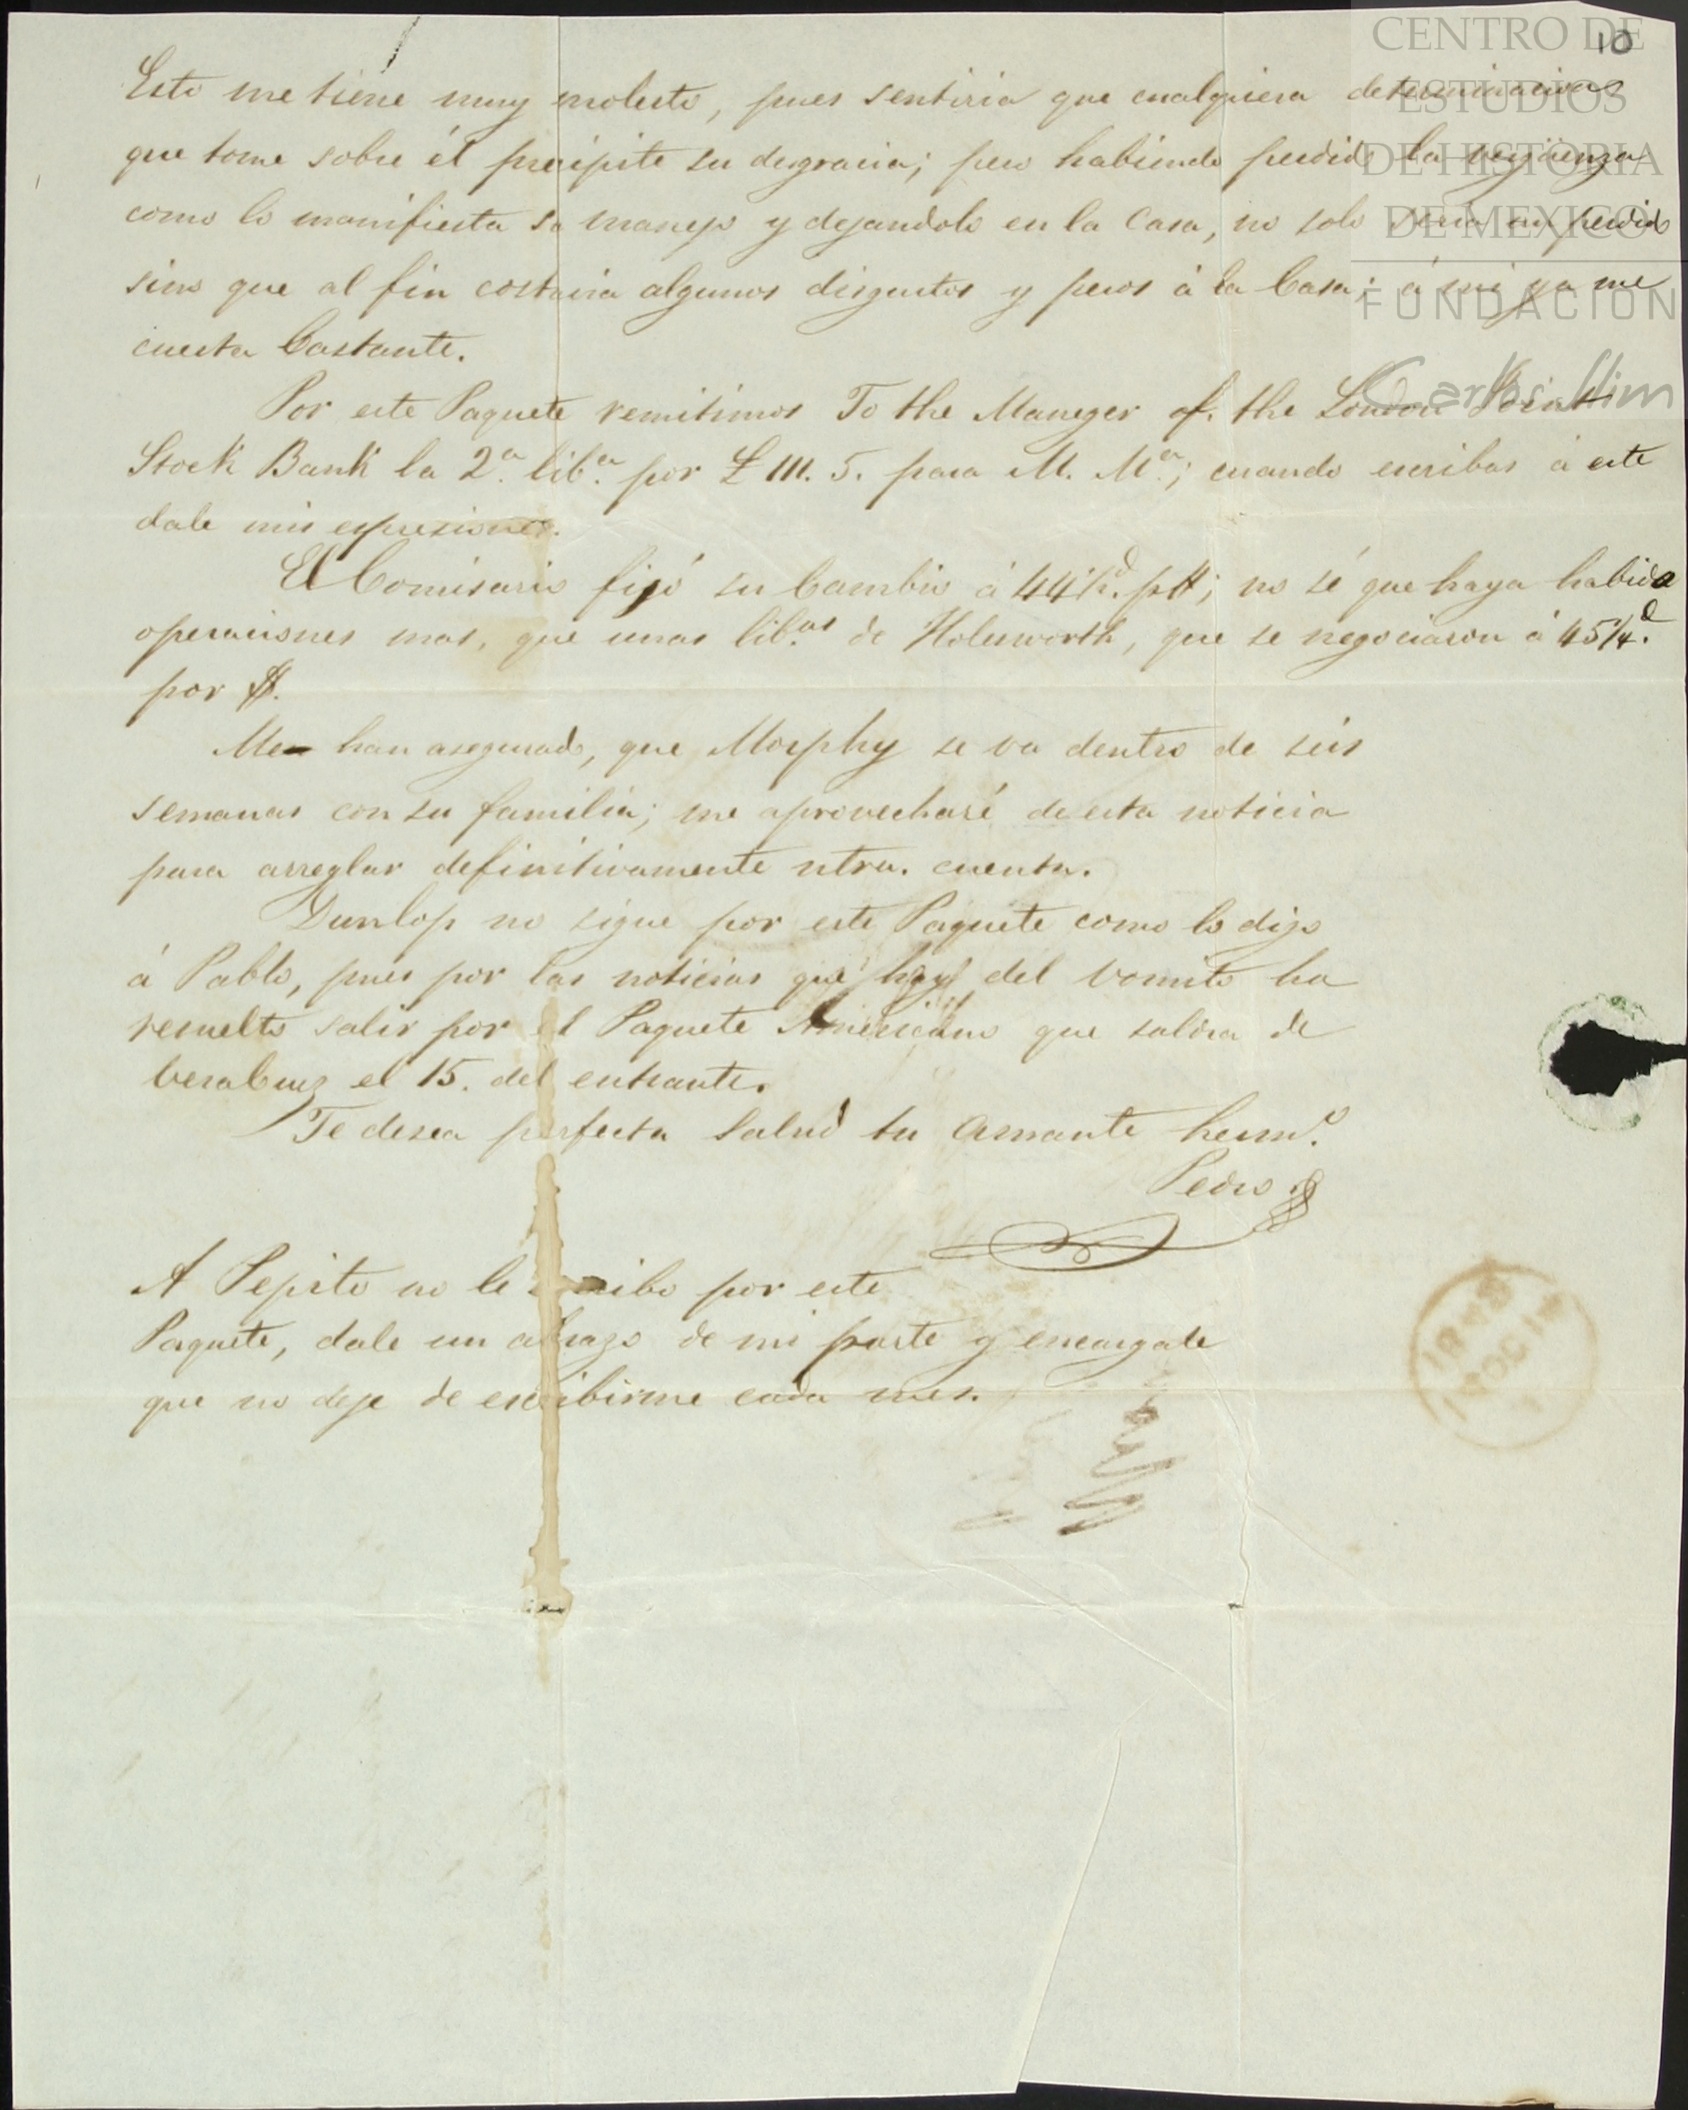 10
CENTRO DE
ESTUDIOS
DE HISTORIA
DE MEXICO
FUNDACION
Carlos Slim
Esto me tiene muy molesto, pues sentiria que cualquiera determinacion
que tome sobre él precipite su desgracia; pero habiendo perdido la vergüenza
como lo manifiesta su manejo y dejandolo en la Casa, no solo seria un perdido
sino que al fin costaria algunos disgustos y pesos á la Casa; á mi ya me
cuesta bastante.
Por este Paquete remitimos To the Maneger of. the London Joint
Stock Bank la 2.ª lib.ª por £ 111. 5. para M. M.ª; cuando escribas á este
dale mis espresiones.
El Comisario fijó su Cambio á 44½.d p$; no sé que haya habido
operaciones mas, que unas lib.as de Holesworth, que se negociaron á 45¼.d
por $.
Me han asegurado, que Morphy se va dentro de seis
semanas con su familia; me aprovecharé de esta noticia
para arreglar definitivamente ntra. cuenta.
Dunlop no sigue por este Paquete como lo dijo
á Pablo, pues por las noticias que hay del vomito ha
resuelto salir por el Paquete Americano que saldra de
VeraCruz el 15. del entrante.
Te desea perfecta Salud tu amante herm.o
Pedro
A Pepito no le escribo por este
Paquete, dale un abrazo de mi parte y encargale
que no deje de escribirme cada mes.